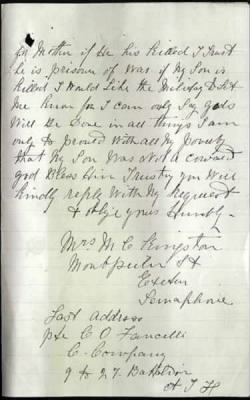 for Mother if He his Killed I Trust
he is prisoner of War if My Son is
Killed I Would Like the Military to Let
me Know for I can only Say gods
Will Be Done in all things I am
only to proud With all My poverty
that My Son Was Not a coward
god Bless Him Trusting you Will
kindly reply With My Request
& oblige yours Humbly
Mrs M C Kingston
Montpelier St
Exeter
Semaphore
Last address
pte C O
C. Company
9 to 27. Battalion
A I F